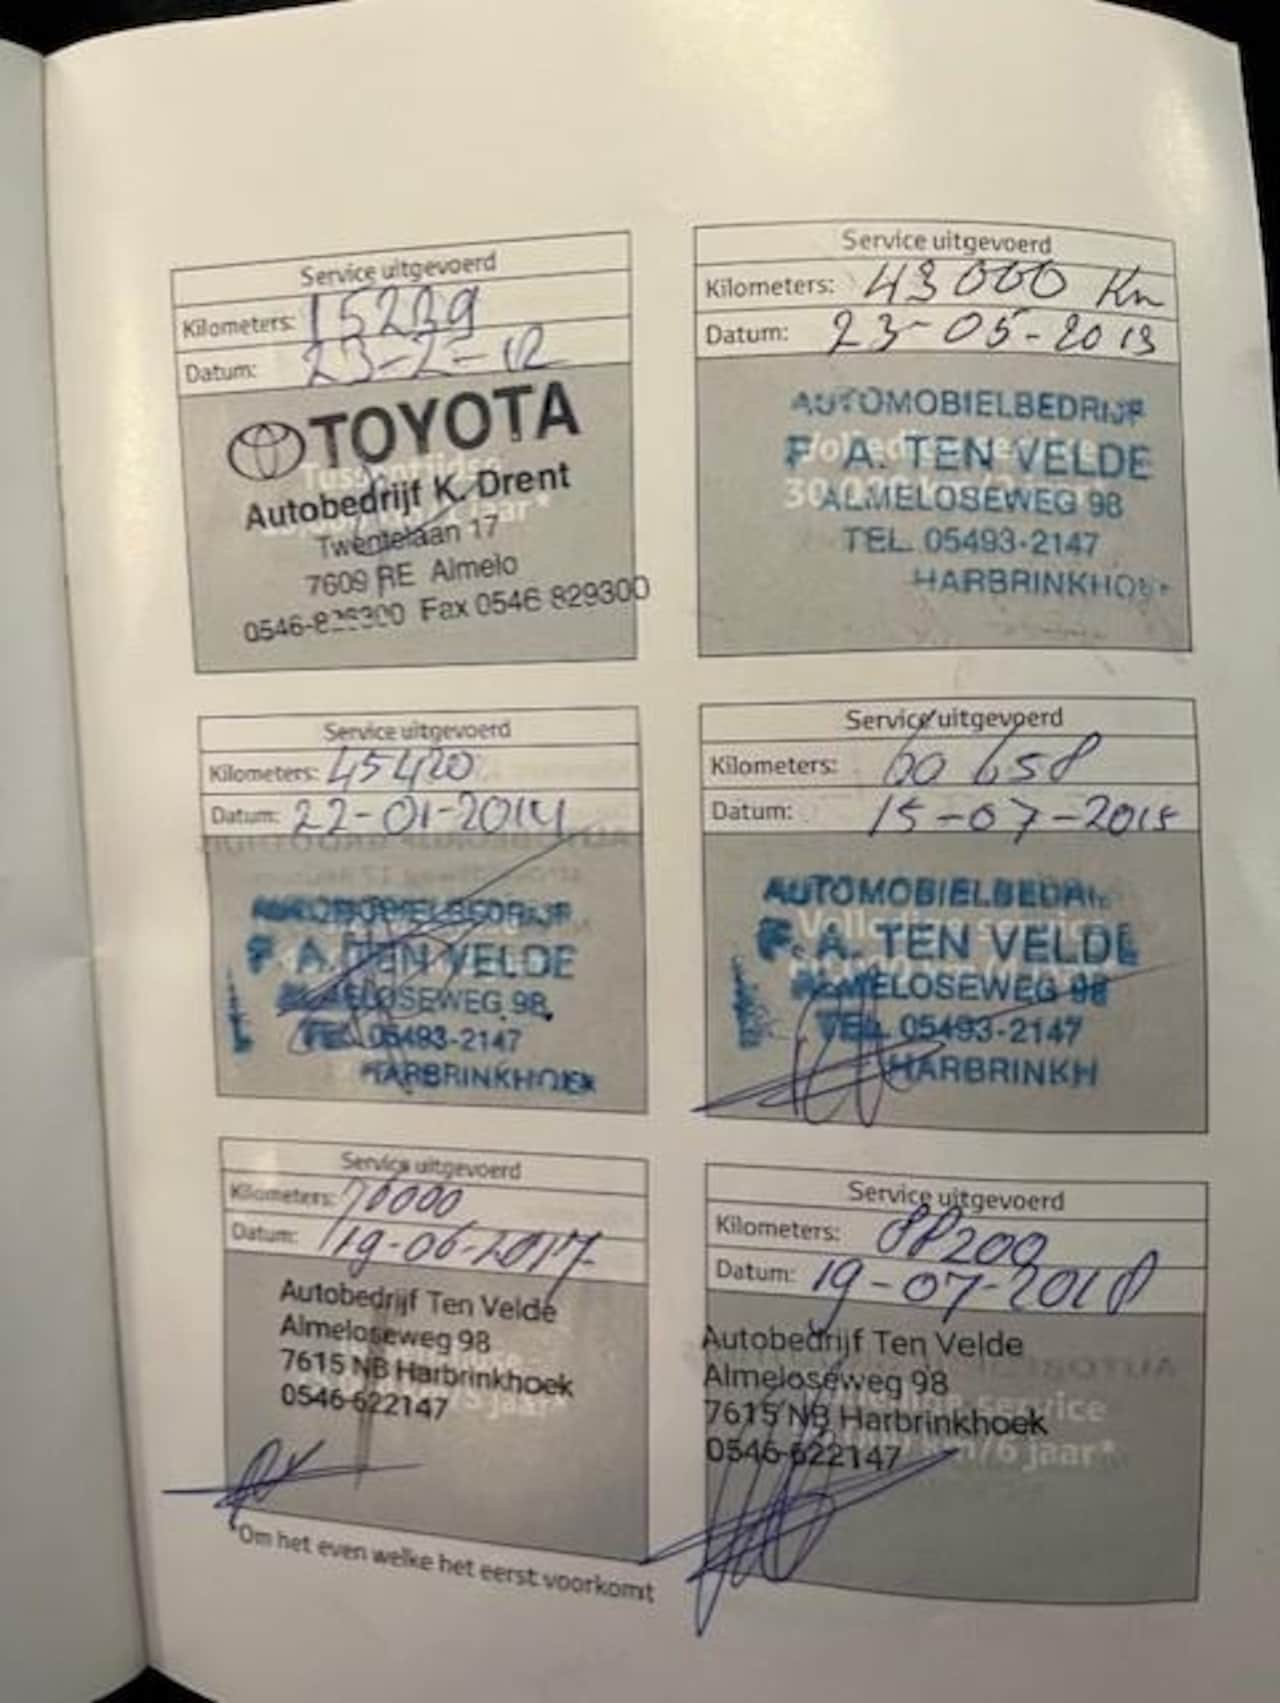 Service uitgevoerd
Kilometers: 15239
Datum: 23-2-12
TOYOTA
Autobedrijf K. Drent
Twentelaan 17
7609 RE Almelo
Fax 0546 829300
Service uitgevoerd
Kilometers: 43000 Km
Datum: 23-05-2013
AUTOMOBIELBEDRIJF
F. A. TEN VELDE
ALMELOSEWEG 98
TEL. 05493-2147
HARBRINKHOE
Service uitgevoerd
Kilometers: 45420
Datum: 22-01-2014
AUTOMOBIELBEDRIJF
F. A. TEN VELDE
ALMELOSEWEG 98
TEL. 05493-2147
HARBRINKHOEK
Service uitgevoerd
Kilometers: 60 658
Datum: 15-07-2015
AUTOMOBIELBEDRI
F. A. TEN VELDE
ALMELOSEWEG 98
TEL. 05493-2147
HARBRINKH
Service uitgevoerd
Kilometers: 76000
Datum: 19-06-2017
Autobedrijf Ten Velde
Almeloseweg 98
7615 NB Harbrinkhoek
0546-622147
5 jaar*
Service uitgevoerd
Kilometers: 88200
Datum: 19-07-2018
Autobedrijf Ten Velde
Almeloseweg 98
7615 NB Harbrinkhoek
service
0546-622147
km/6 jaar*
*Om het even welke het eerst voorkomt